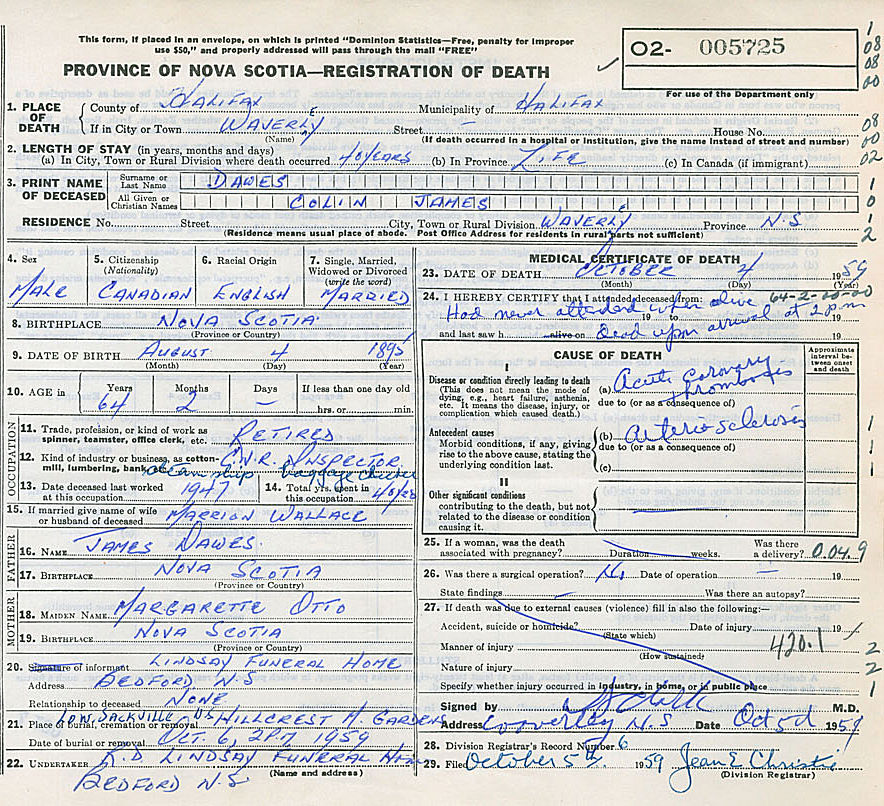 This form, if placed in an envelope, on which is printed "Dominion Statistics—Free, penalty for improper
use $50," and properly addressed will pass through the mail "FREE"
PROVINCE OF NOVA SCOTIA—REGISTRATION OF DEATH
O2- 005725
For use of the Department only
1
08
08
00
08
00
02
1
0
1
2
1. PLACE OF DEATH
County of Halifax Municipality of Halifax
If in City or Town Waverly Street — House No.
(Name) (If death occurred in a hospital or institution, give the name instead of street and number)
2. LENGTH OF STAY (in years, months and days)
(a) In City, Town or Rural Division where death occurred 40 years (b) In Province Life (c) In Canada (if immigrant)
3. PRINT NAME OF DECEASED
Surname or Last Name DAWES
All Given or Christian Names COLIN JAMES
RESIDENCE No. Street City, Town or Rural Division Waverly Province N.S
(Residence means usual place of abode. Post Office Address for residents in rural parts not sufficient)
4. Sex Male
5. Citizenship (Nationality) Canadian
6. Racial Origin English
7. Single, Married, Widowed or Divorced (write the word) Married
8. BIRTHPLACE Nova Scotia
(Province or Country)
9. DATE OF BIRTH August 4 1895
(Month) (Day) (Year)
10. AGE in Years Months Days If less than one day old
64 2 — hrs. or min.
OCCUPATION
11. Trade, profession, or kind of work as spinner, teamster, office clerk, etc. Retired
12. Kind of industry or business, as cotton-mill, lumbering, bank, etc. C.N.R. Inspector
baggage
13. Date deceased last worked at this occupation 1947
14. Total yrs. spent in this occupation
15. If married give name of wife or husband of deceased Marrion Wallace
FATHER
16. NAME James Dawes
17. BIRTHPLACE Nova Scotia
(Province or Country)
MOTHER
18. MAIDEN NAME Margarette Otto
19. BIRTHPLACE Nova Scotia
(Province or Country)
20. Signature of informant Lindsay Funeral Home
Address Bedford N.S
Relationship to deceased None
21. Place of burial, cremation or removal Low. Sackville NS Hillcrest M. Gardens
Date of burial or removal Oct. 6, 2PM, 1959
22. UNDERTAKER R.D Lindsay Funeral Home
(Name and address)
Bedford N.S
MEDICAL CERTIFICATE OF DEATH
23. DATE OF DEATH October 4 1959
(Month) (Day) (Year)
24. I HEREBY CERTIFY that I attended deceased from: 64-2-00-00
Had never attended when alive
19 to 19
and last saw h alive on Dead upon arrival at 2 p.m
CAUSE OF DEATH
Approximate interval between onset and death
I
Disease or condition directly leading to death
(This does not mean the mode of dying, e.g., heart failure, asthenia, etc. It means the disease, injury, or complication which caused death.)
(a) Acute coronary thrombosis
due to (or as a consequence of)
Antecedent causes
Morbid conditions, if any, giving rise to the above cause, stating the underlying condition last.
(b) Arterio sclerosis
due to (or as a consequence of)
(c)
1
1
1
II
Other significant conditions
contributing to the death, but not related to the disease or condition causing it.
25. If a woman, was the death associated with pregnancy? Duration weeks. Was there a delivery? 0.04.9
26. Was there a surgical operation? No Date of operation — 19
State findings — Was there an autopsy?
27. If death was due to external causes (violence) fill in also the following:—
Accident, suicide or homicide? Date of injury 19
(State which)
Manner of injury 420.1
(How sustained)
Nature of injury
Specify whether injury occurred in industry, in home, or in public place
2
2
1
Signed by M.D.
Address Waverley N.S Date Oct 5th 1959
28. Division Registrar's Record Number 6
29. Filed October 5th. 1959 Jean E Christie
(Division Registrar)